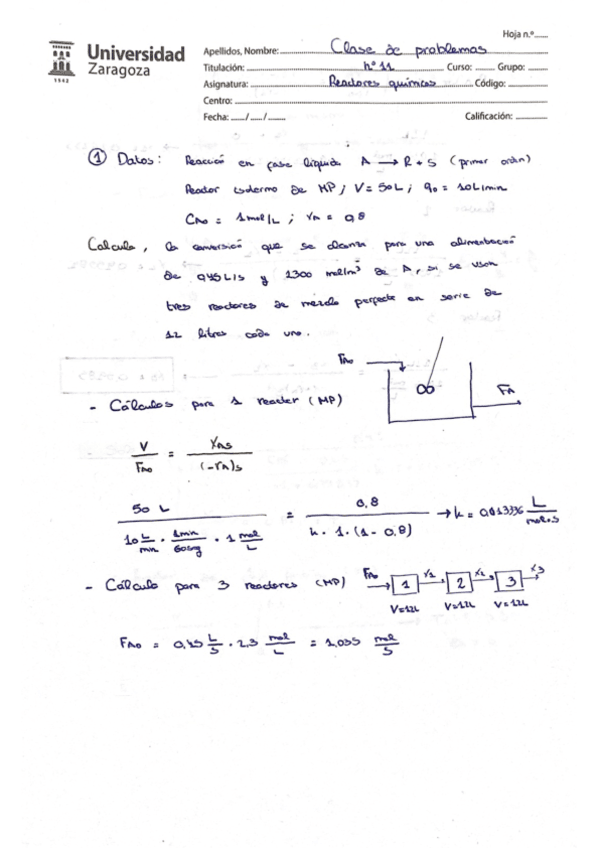 Hoja n.º
Universidad
Zaragoza
1542
Apellidos, Nombre: Clase de problemas
Titulación: nº 11 Curso: Grupo:
Asignatura: Reactores químicos Código:
Centro:
Fecha: / / Calificación:
① Datos: Reacción en fase líquida A → R + S (primer orden)
Reactor isotermo de MP; V = 50L; q0 = 10L/min
CA0 = 1mol/L; XA = 0,8
Calcula, la conversión que se alcanza para una alimentación
de 0,45 L/s y 2300 mol/m³ de A, si se usan
tres reactores de mezcla perfecta en serie de
12 litros cada uno.
FA0
FA
- Cálculos para 1 reactor (MP)
V / FA0 = XAS / (-rA)S
50 L / (10 L/min · 1min/60seg · 1 mol/L) = 0,8 / (k · 1 · (1 - 0,8)) → k = 0,013336 L/mol·s
- Cálculo para 3 reactores (MP) FA0 → 1 X1 → 2 X2 → 3 X3
V=12L V=12L V=12L
FA0 = 0,45 L/s · 2,3 mol/L = 1,035 mol/s